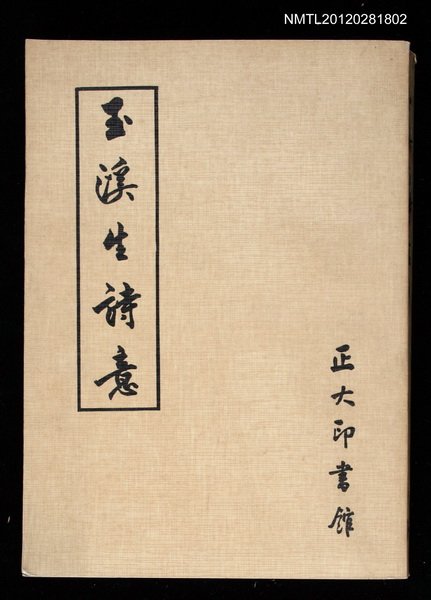 NMTL20120281802
玉溪生詩意
正大印書館